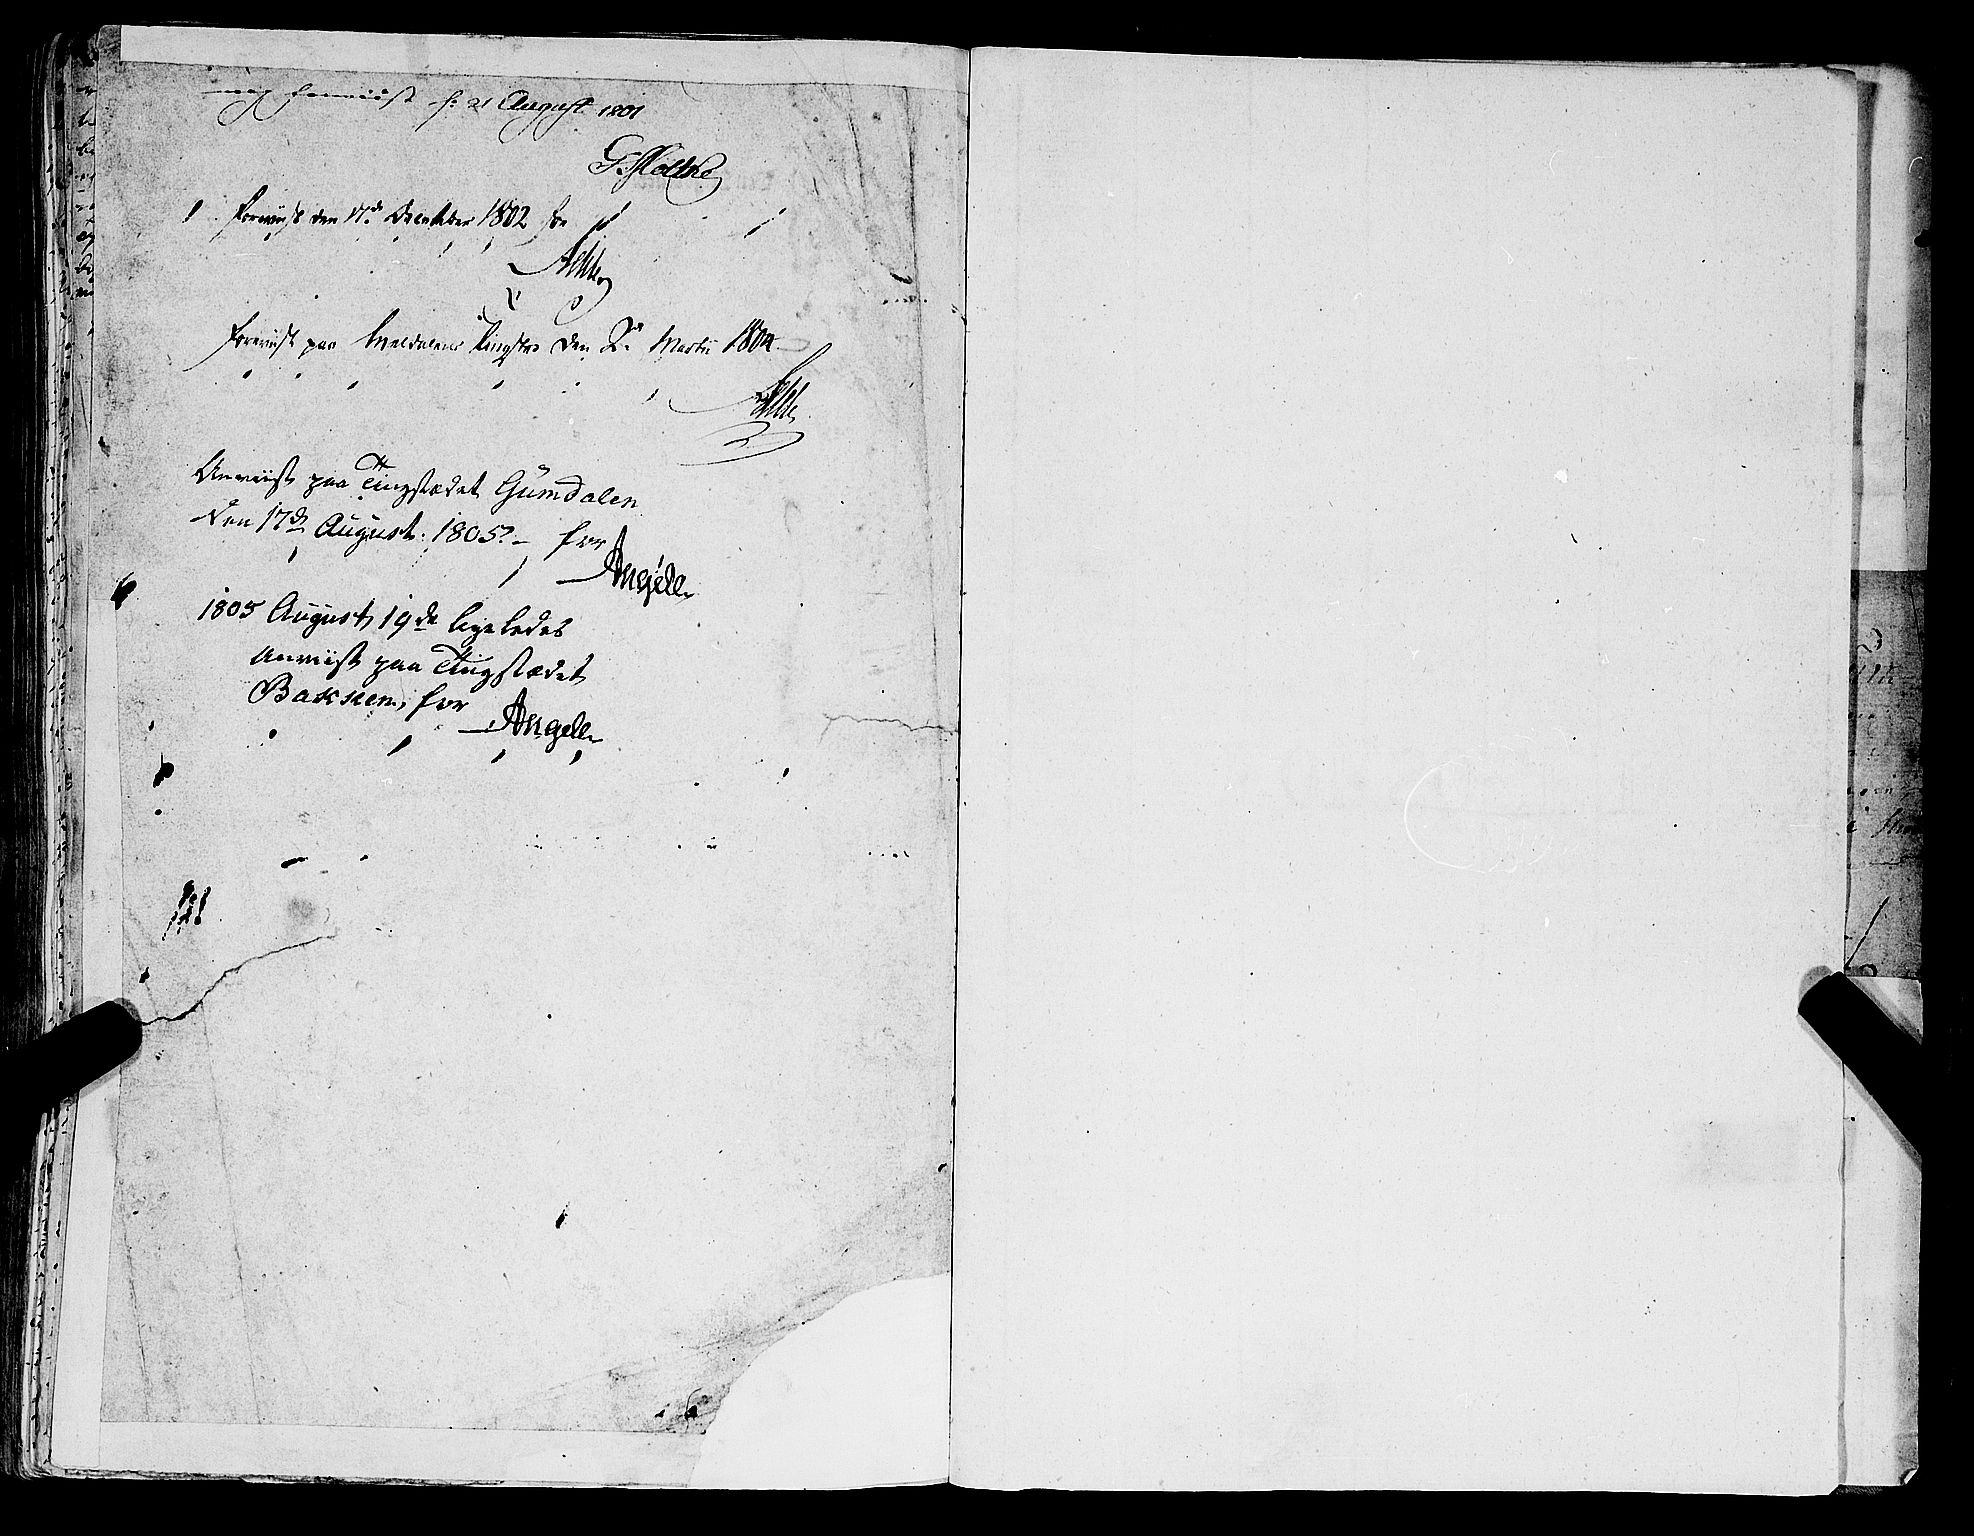 mig foreviist d: 21 August 1801
G. Moltke
foreviist den 17de December 1802 for
foreviist paa Meldalens Tingsted den 2de Martii 1804
Anviist paa Tingstædet Gumdalen
den 17de August. 1805. – for
Angell
1805 August 19de ligeledes
Anviist paa Tingstædet
Bakken, for
Angell